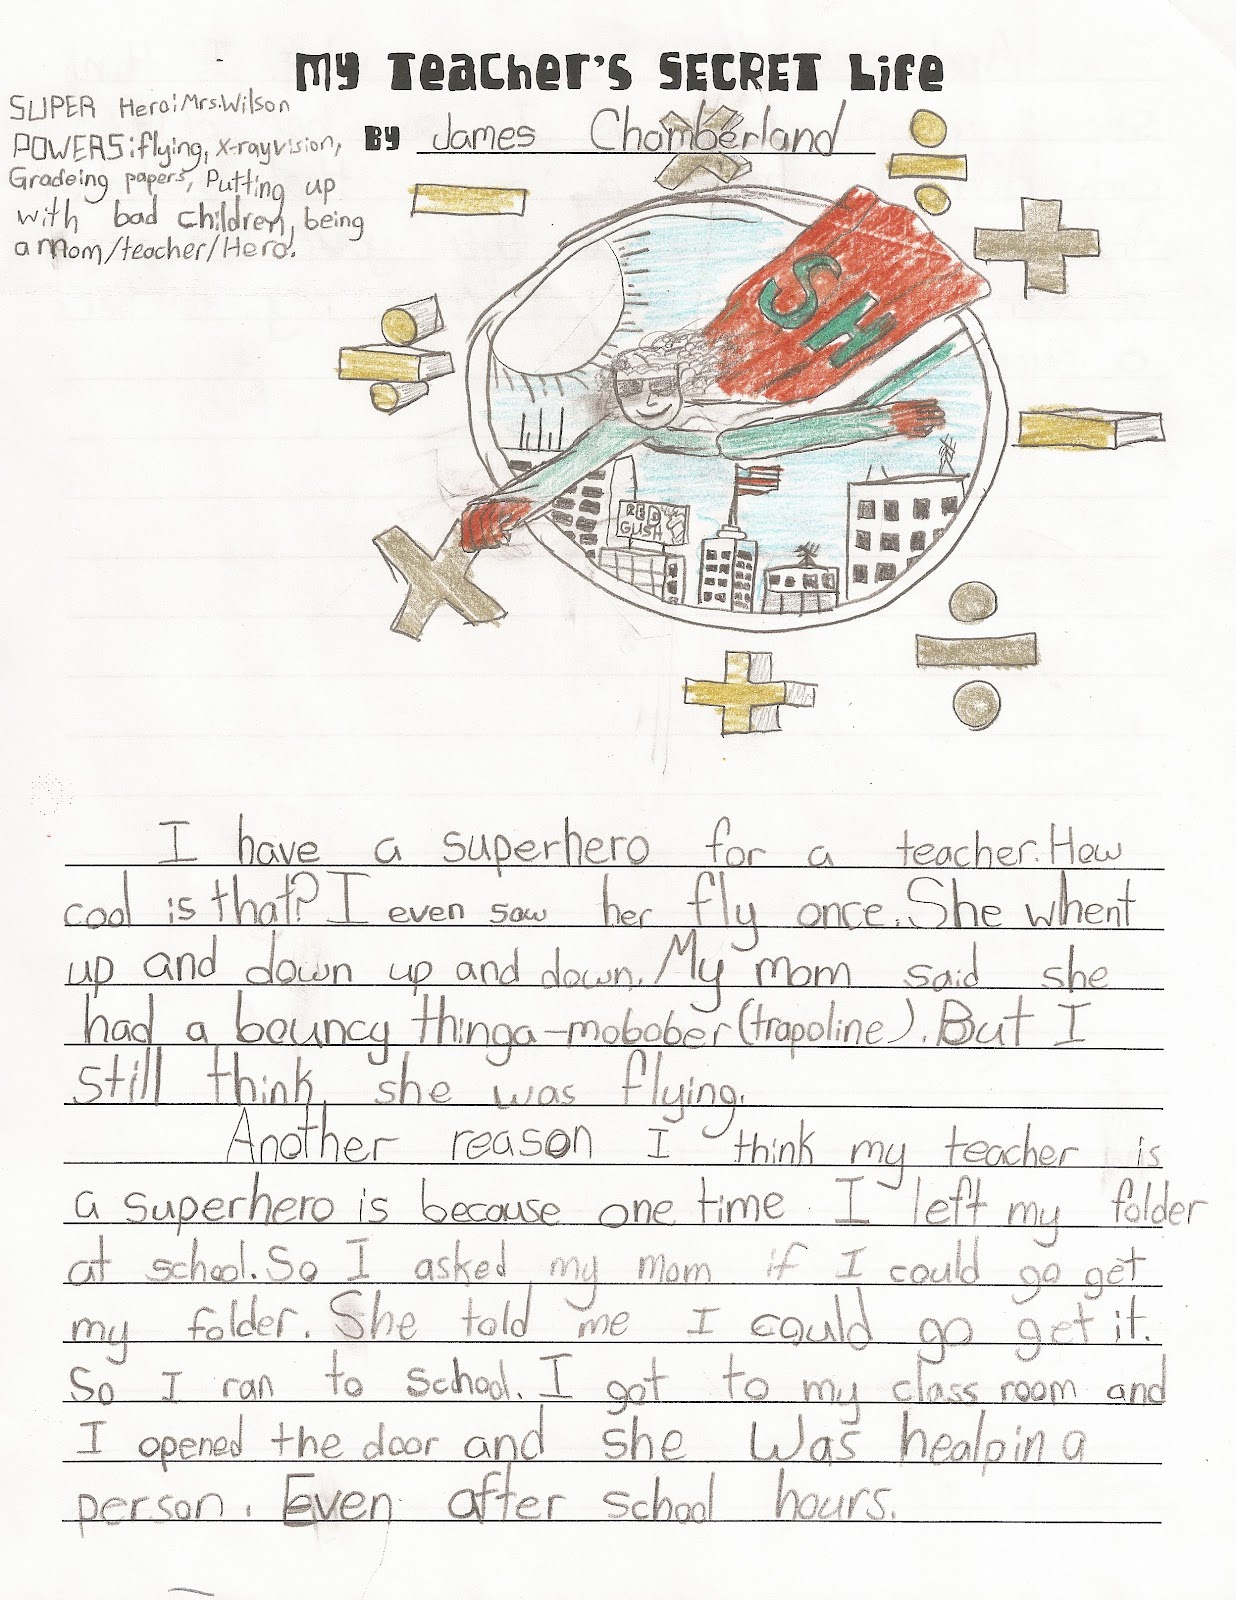 My Teacher's SECRET Life
SUPER Hero: Mrs. Wilson
POWERS: flying, x-ray vision,
Gradeing papers, Putting up
with bad children, being
a mom/teacher/Hero.
BY James Chamberland
SH
RED
GUSH
I have a superhero for a teacher. How
cool is that? I even saw her fly once. She whent
up and down up and down. My mom said she
had a bouncy thinga-mobober (trapoline). But I
still think she was flying.
Another reason I think my teacher is
a superhero is because one time I left my folder
at school. So I asked my mom if I could go get
my folder. She told me I could go get it.
So I ran to school. I got to my class room and
I opened the door and she was healpin a
person. Even after school hours.